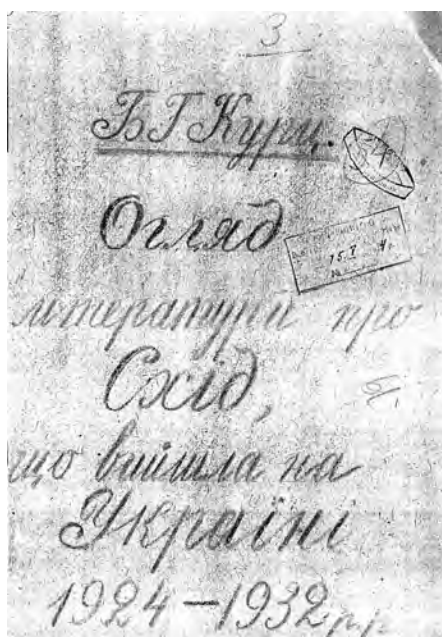 3
Б Г Курц.
Огляд
літератури про
Схід,
що вийшла на
Україні
1924 – 1932 р.р.